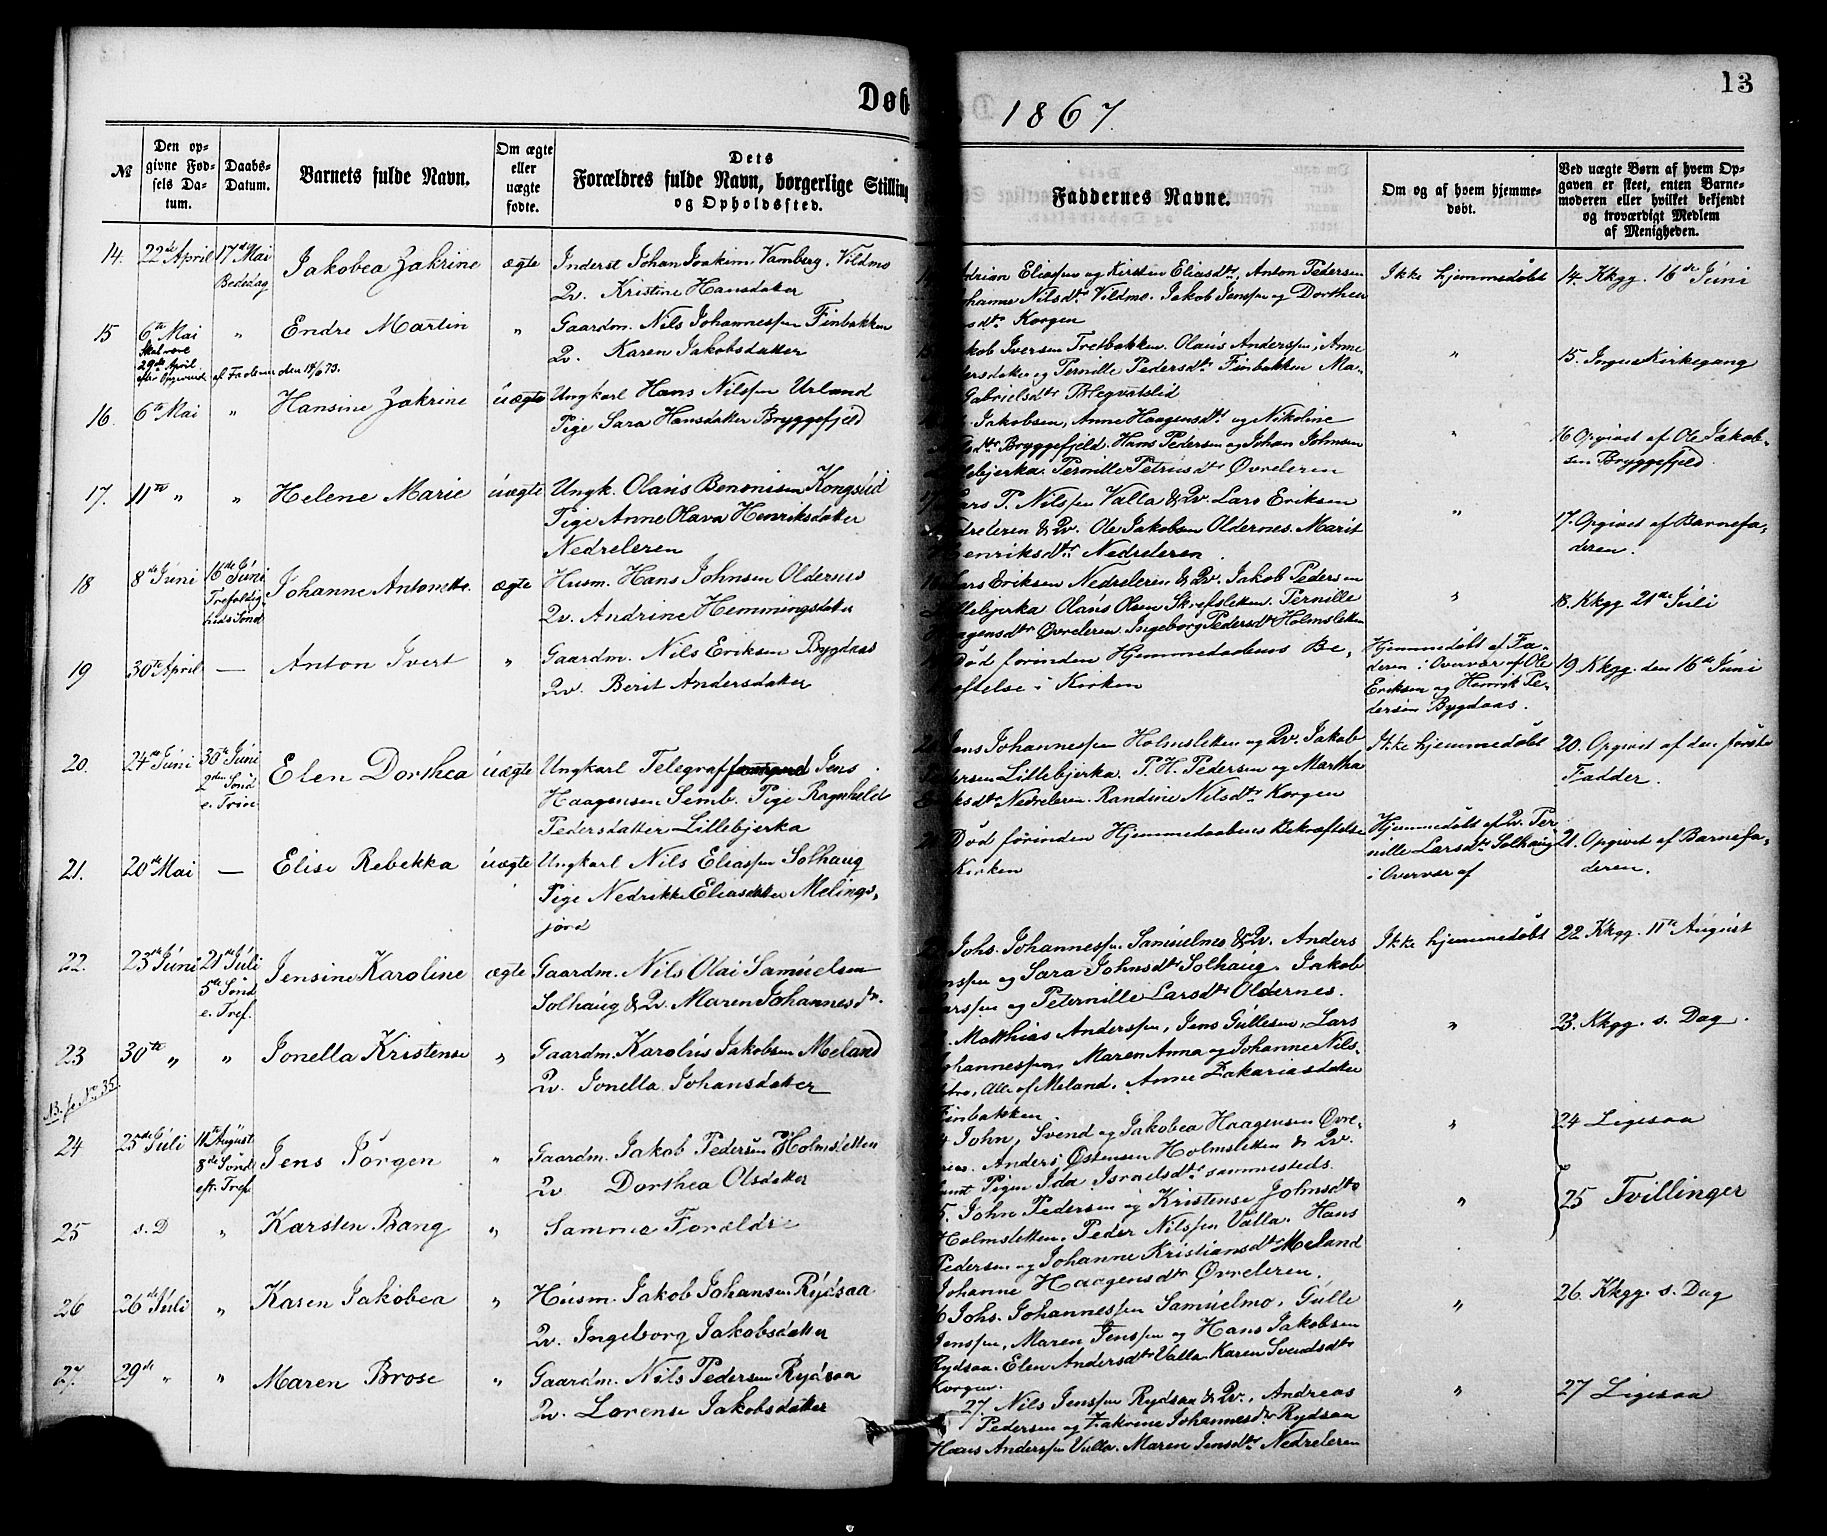 Døb
1867.
13
№
Den op-
givne Fød-
sels Da-
tum.
Daabs-
Datum.
Barnets fulde Navn.
Om ægte
eller
uægte
fødte.
Dets
Forældres fulde Navn, borgerlige Stilling
og Opholdssted.
Faddernes Navne.
Om og af hvem hjemme-
døbt.
Ved uægte Børn af hvem Op-
gaven er skeet, enten Barne-
moderen eller hvilket bekjendt
og troværdigt Medlem
af Menigheden.
14. 22de April 17de Mai Bededag Jakobea Zakrine ægte
Inderst Johan Joakim Vamberg. Vildmo
Qv. Kristine Hansdatter
Adrian Eliassen og Kirsten Eliasdtr, Anton Pedersen
Johanne Nilsdtr Vildmo. Jakob Jenssen og Dorthea
sdtr Korgen
Ikke hjemmedøbt
14. Kkgg. 16de Juni
15 6te Mai " Endre Martin "
Skal være
29de April
efter Opgivende af Faderen den 18/6 73.
Gaardm. Nils Johannessen Finbakken
Qv. Karen Jakobsdatter
Jakob Iversen Tretbakken. Olaus Anderssen, Anne
dersdatter og Pernille Pedersdtr Finbakken Ma-
Gabrielsdtr Blegvatslid
"
15. Ingen Kirkegang
16. 6te Mai " Hansine Zakrine uægte
Ungkarl Hans Nilssen Urland
Pige Sara Hansdatter Bryggefjeld
Jakobsen, Anne Haagensdtr og Nikoline
sdtr Bryggefjeld. Hans Pedersen og Johan Johnsen
Lillebjerka. Pernille Petrusdtr Øvreleren
"
16 Opgivet af Ole Jakob-
sen Bryggefjeld.
17. 11te " " Helene Marie uægte
Ungk. Olaus Benonisen Kongslid
Pige Anne Olava Henriksdatter
Nedreleren
Lars P. Nilssen Valla & Qv. Lars Eriksen
Nedreleren & Qv. Ole Jakobsen Oldernes. Marit
Henriksdtr Nedreleren
"
17. Opgivet af Barnefa-
deren.
18 8de Juni 16de Juni Trefoldig-
heds Sønd Johanne Antonette. ægte
Husm. Hans Johnsen Oldernes
Qv. Andrine Hemmingsdatter
Lars Eriksen Nedreleren & Qv. Jakob Pedersen
Lillebjerka Olaus Olsen Skrefsletten. Pernille
Haagensdtr Øvreleren. Ingeborg Pedersdtr Holmsletten
"
18. Kkgg 21de Juli
19 30te April — Anton Ivert "
Gaardm. Nils Eriksen Bygdaas
Qv. Berit Andersdatter
Død forinden Hjemmedaabens Be-
kræftelse i Kirken
Hjemmedøbt af Fa-
deren i Overvær af Ole
Eriksen og Henrik Pe-
dersen Bygdaas.
19. Kkgg. den 16de Juni
20. 24de Juni 30te Juni
2den Sønd
e. Trin Elen Dorthea uægte
Ungkarl Telegraf Jens
Haagensen Semb. Pige Ragnhild
Pedersdatter Lillebjerka
Jens Johannessen Holmsletten og Qv. Jakob
Pedersen Lillebjerka. P. H. Pedersen og Martha
ksdtr Nedreleren. Randine Nilsdtr Korgen
Ikke hjemmedøbt
20. Opgivet af den første
Fadder.
21. 20de Mai — Elise Rebekka uægte
Ungkarl Nils Eliassen Solhaug
Pige Nedrikke Eliasdatter Melings-
jord
21 Død forinden Hjemmedaabens Bekræftelse
Kirken
Hjemmedøbt af Qv. Per
nille Larsdtr Solhaug
i Overvær af
21. Opgivet af Barnefa-
deren.
22. 23de Juni 21de Juli
5te Sønd
e. Tref. Jensine Karoline ægte
Gaardm. Nils Olai Samuelsen
Solhaug & Qv. Maren Johannesdtr.
Johs. Johannessen Samuelmo & Qv. Anders
Jenssen og Sara Johnsdtr Solhaug. Jakob
Larssen og Peternille Larsdtr Oldernes.
Ikke hjemmedøbt
22 Kkgg. 11te August
23 30te " " Jonella Kristense "
Gaardm. Karolus Jakobsen Meland
Qv. Jonella Johansdatter
Matthias Anderssen, Jens Gullesen, Lars
Johannessen, Maren Anna og Johanne Nils-
døtre, Alle af Meland. Anne Zakariasdatter
Finbakken.
"
23. Kkgg. s. Dag.
NB. se No 35.
24 25de Juli 11te August
8de Sønd
eft. Tref. Jens Jørgen "
Gaardm. Jakob Pedersen Holmsletten
Qv Dorthea Olsdatter
John, Svend og Jakobea Haagensen Øvre-
leren. Anders Østensen Holmsletten & Qv.
samt Pigen Ida Israelsdtr sammesteds.
"
24 Ligesaa
25 s. D " Karsten Bang "
Samme Forældre
5. John Pedersen og Kristense Johnsdtr
Holmsletten. Peder Nilssen Valla. Hans
Pedersen og Johanne Kristiansdtr Meland
Johanne Haagensdtr Øvreleren.
"
25 Tvillinger
26 26de Juli " Karen Jakobea "
Husm. Jakob Johansen Rydsaa
Qv. Ingeborg Jakobsdatter
6 Johs. Johannessen Samuelmo, Gulle
Jenssen, Maren Jenssen og Hans Jakobsen
Rydsaa. Elen Andersdtr Valla. Karen Svendsdtr
Korgen.
"
26 Kkgg. s. Dag
27. 29de " " Maren Brose "
Gaardm. Nils Pedersen Rydsaa
Qv. Lorense Jakobsdatter
27. Nils Jenssen Rydsaa & Qv., Andreas
Pedersen og Zakrine Johannesdtr Rydsaa
Hans Anderssen Valla. Maren Jensdtr Nedreleren
"
27 Ligesaa